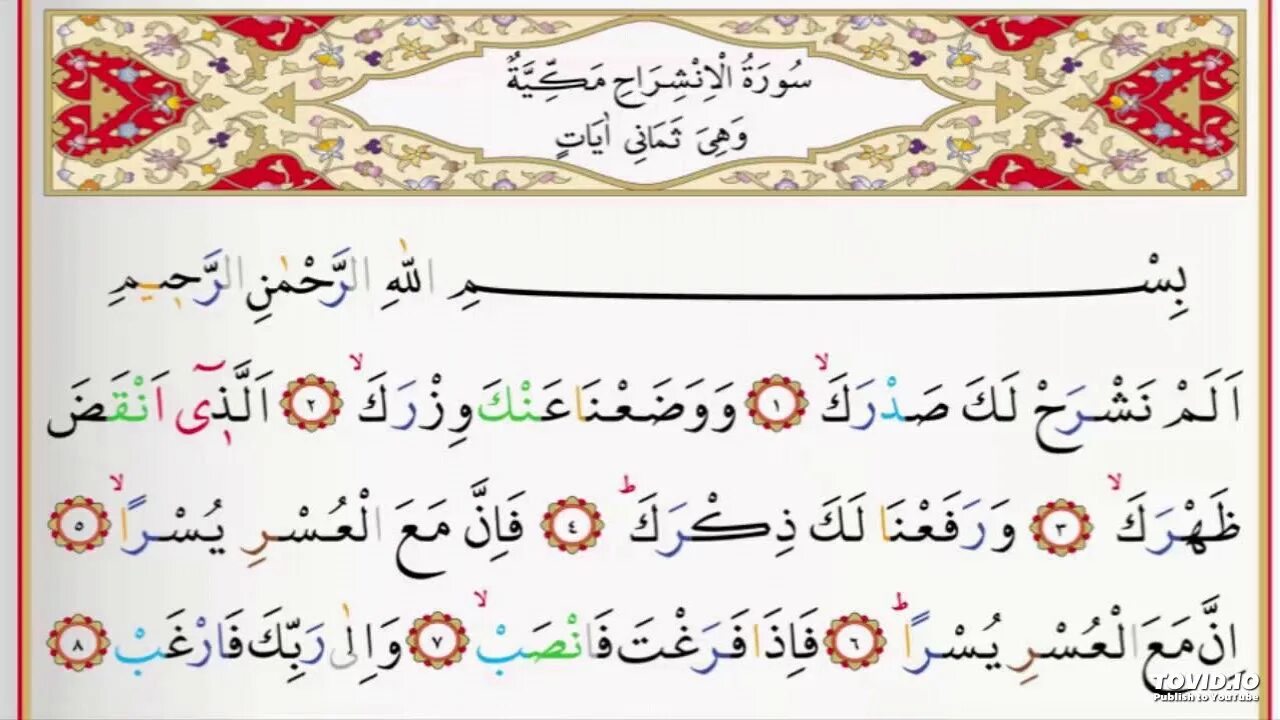 سُورَةُ الْاِنْشِرَاحِ مَكِّيَّةٌ
وَهِىَ ثَمَانِي اٰيَاتٍ
بِسْمِ اللّٰهِ الرَّحْمٰنِ الرَّحٖيمِ
اَلَمْ نَشْرَحْ لَكَ صَدْرَكَۙ ١ وَوَضَعْنَا عَنْكَ وِزْرَكَۙ ٢ اَلَّذٖٓى اَنْقَضَ
ظَهْرَكَۙ ٣ وَرَفَعْنَا لَكَ ذِكْرَكَؕ ٤ فَاِنَّ مَعَ الْعُسْرِ يُسْرًاۙ ٥
اِنَّ مَعَ الْعُسْرِ يُسْرًاؕ ٦ فَاِذَا فَرَغْتَ فَانْصَبْۙ ٧ وَاِلٰى رَبِّكَ فَارْغَبْ ٨
TOVID.IO
Publish to YouTube